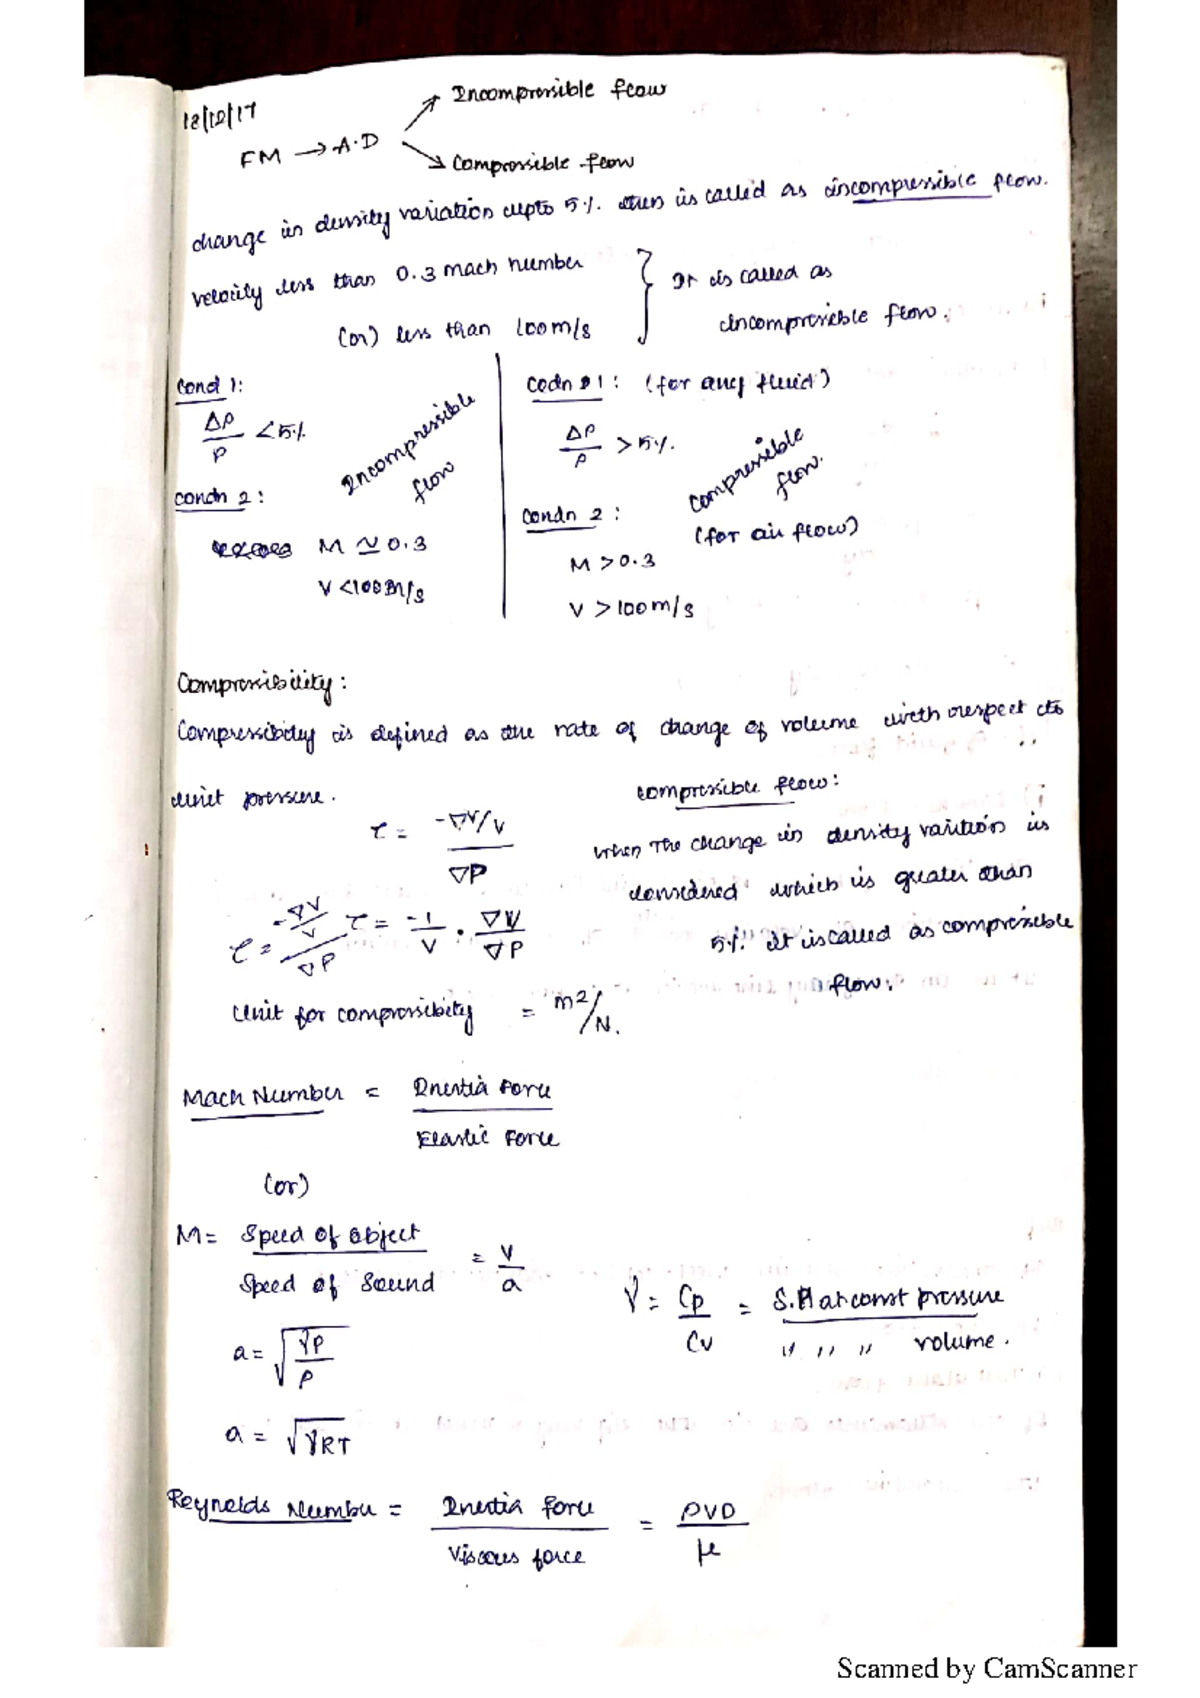 18/12/17
Incompressible flow
FM → A.D
Compressible flow
change in density variation upto 5%. then is called as incompressible flow.
velocity less than 0.3 mach number
(or) less than 100m/s
It is called as
incompressible flow.
Cond 1:
Δρ/ρ < 5%
Incompressible
flow
condn 2:
M ≃ 0.3
V < 100m/s
Codn 1: (for any fluid)
Δρ/ρ > 5%.
compressible
flow.
condn 2:
(for air flow)
M > 0.3
V > 100m/s
Compressibility:
Compressibility is defined as the rate of change of volume with respect to
unit pressure.
τ = -∇V/V / ∇P
τ = -∇V/V / ∇P
τ = -1/V . ∇V/∇P
Unit for compressibility = m2/N.
compressible flow:
When The change in density variation is
considered which is greater than
5%. It is called as compressible
flow.
Mach Number = Inertia Force / Elastic Force
(or)
M = Speed of object / Speed of Sound = V/a
a = √γP/ρ
a = √γRT
γ = Cp/Cv = S.H at const pressure / " " " volume.
Reynolds Number = Inertia force / Viscous force = ρVD/μ
Scanned by CamScanner